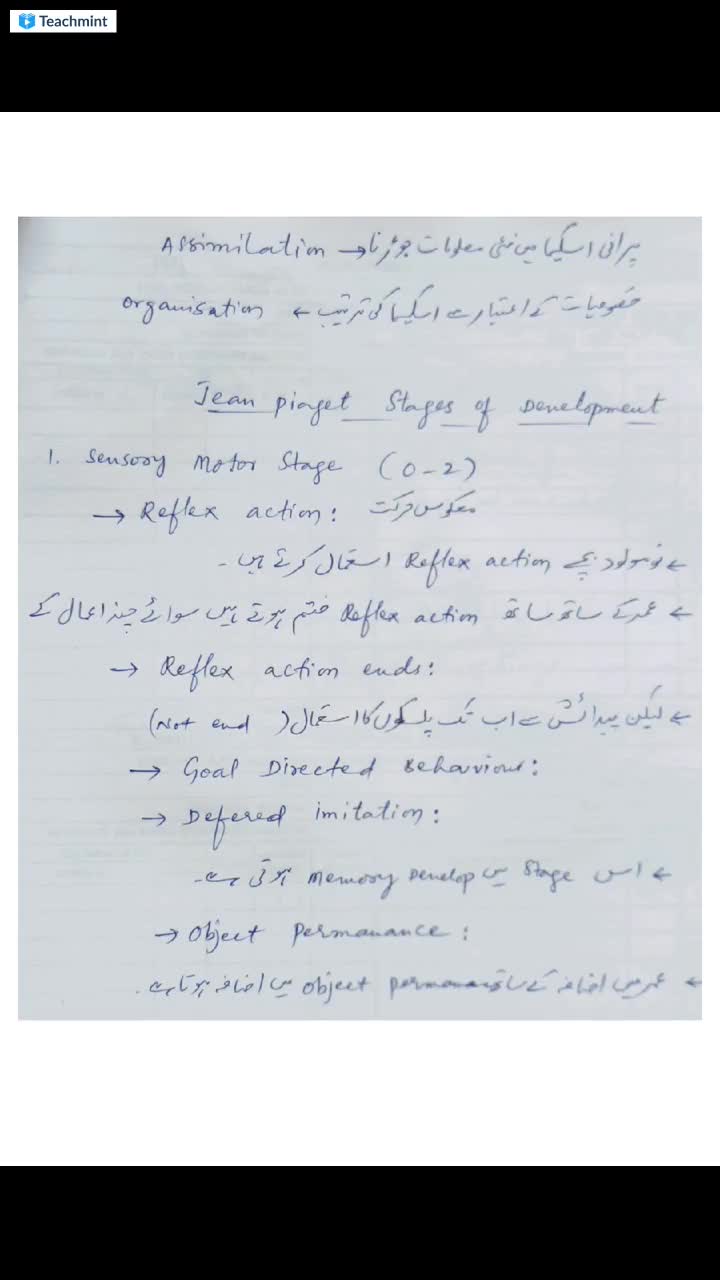 Teachmint
Assimilation → پرانی اسکیما میں نئی معلومات جوڑنا
Organisation ← خصوصیات کے اعتبار سے اسکیما کی ترتیب
Jean Piaget Stages of Development
1. Sensory Motor Stage (0-2)
→ Reflex action: معکوس حرکت
← نومولود بچے Reflex action استعمال کرتے ہیں۔
← عمر کے ساتھ ساتھ Reflex action ختم ہوتے ہیں سوائے چند اعمال کے
→ Reflex action ends:
← لیکن پیدائش سے اب تک پلکوں کا استعمال (Not end)
→ Goal Directed Behaviour:
→ Defered imitation:
← اس Stage میں Memory Develop ہوتی ہے۔
→ Object Permanance:
← عمر میں اضافہ کے ساتھ Object permanance میں اضافہ ہوتا ہے۔